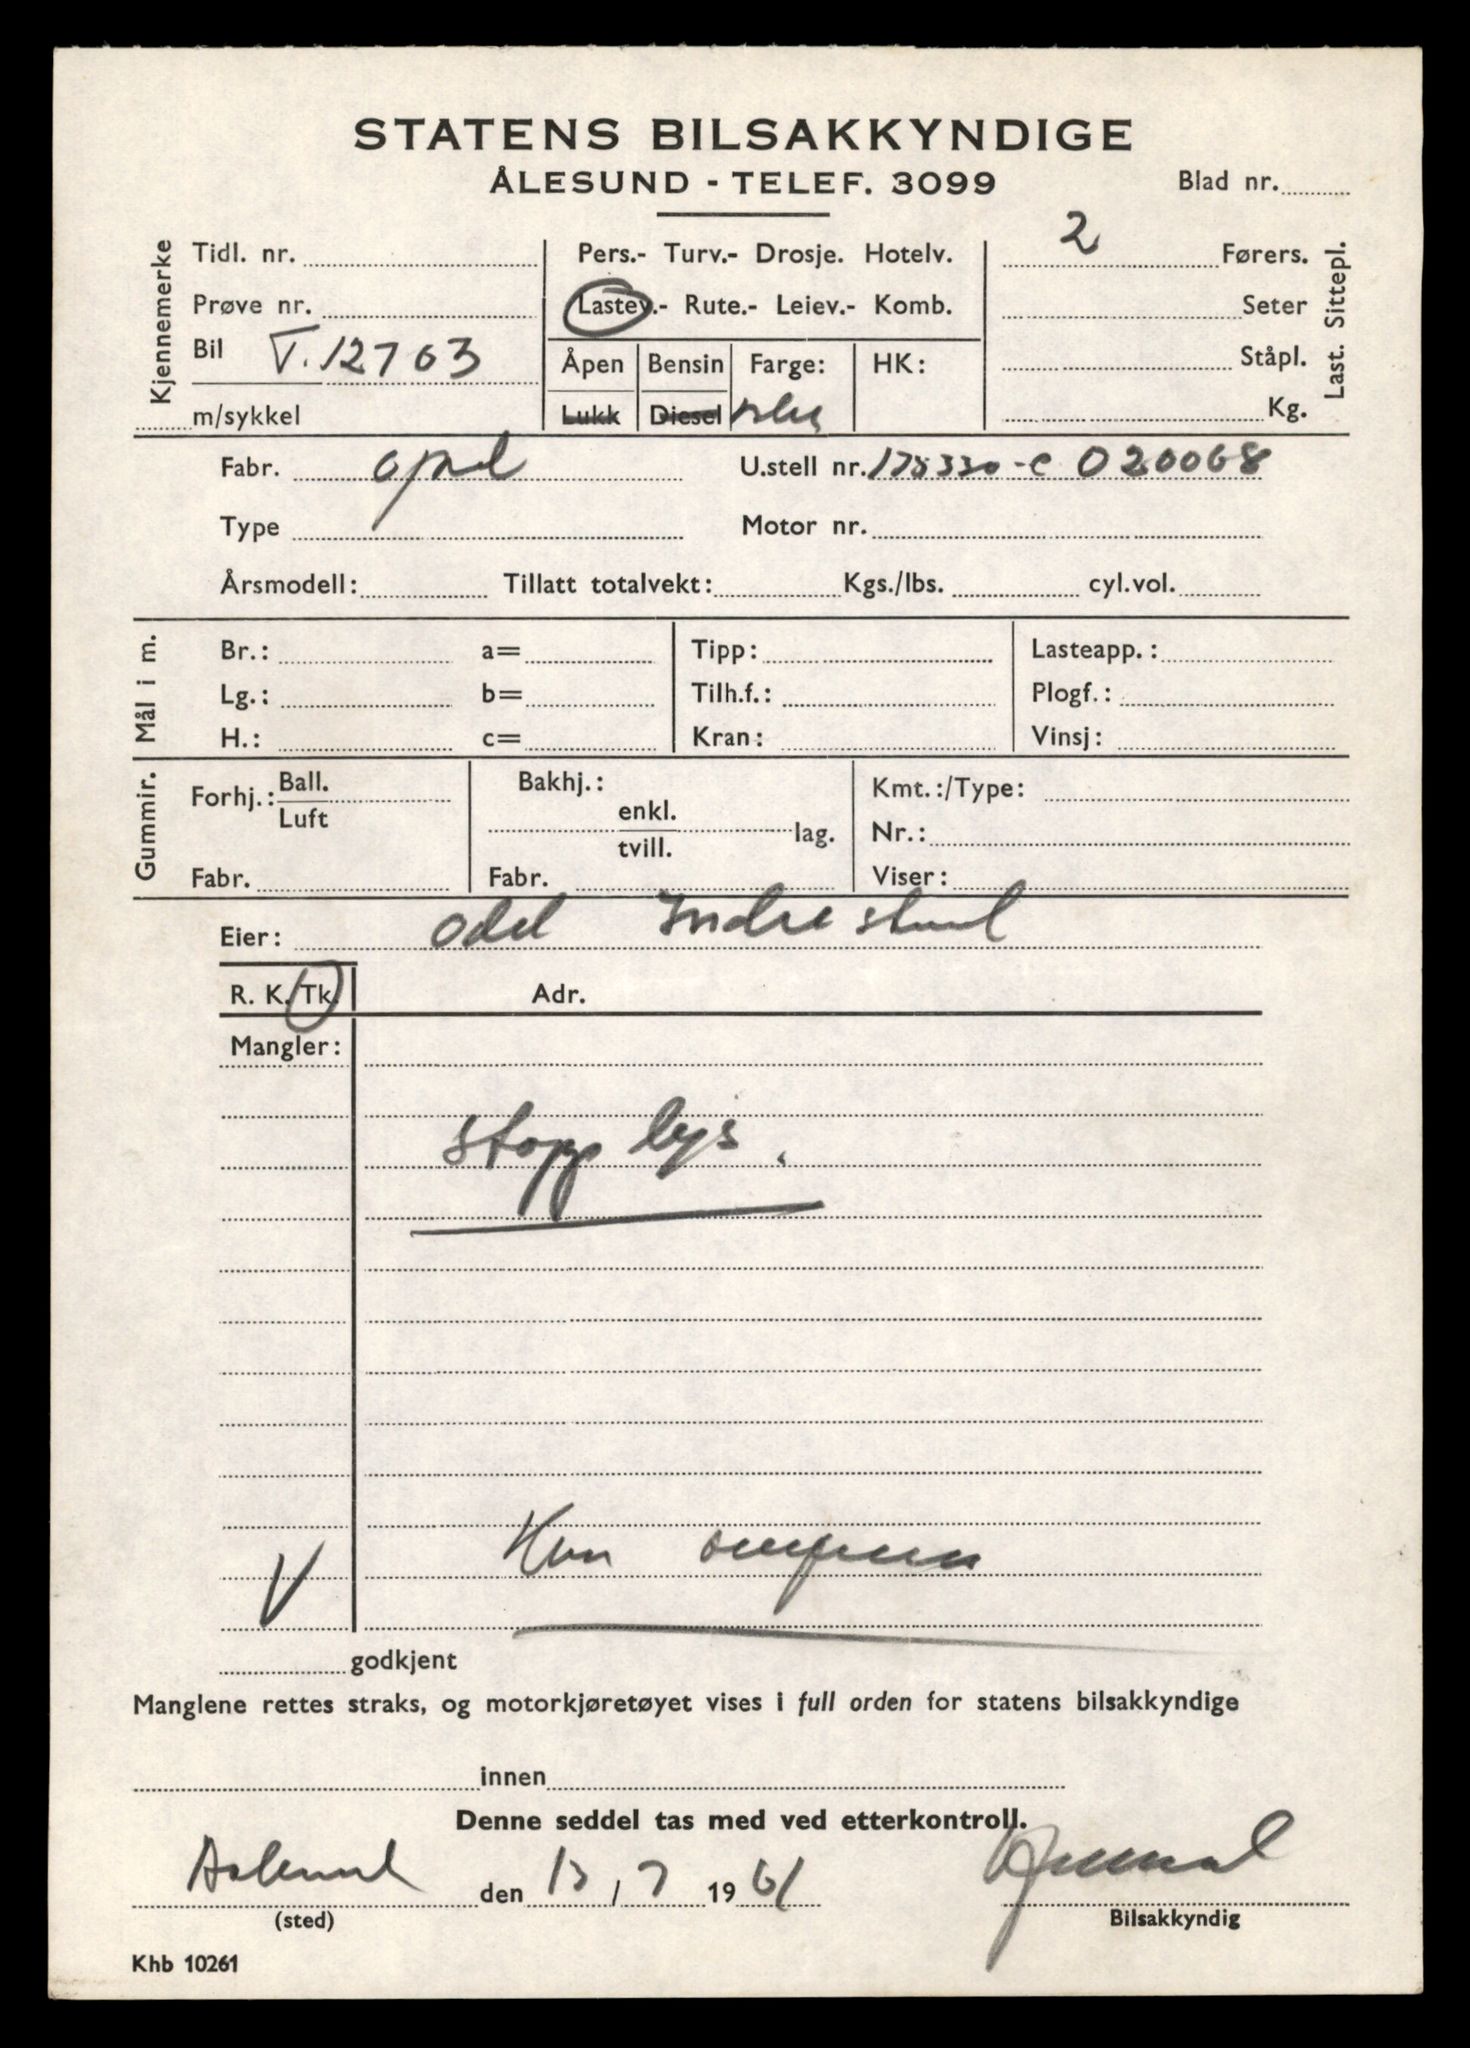 STATENS BILSAKKYNDIGE
ÅLESUND - TELEF. 3099
Blad nr.
Kjennemerke
Tidl. nr.
Prøve nr.
Bil T.12703
m/sykkel
Pers.- Turv.- Drosje. Hotelv.
Lastev.- Rute.- Leiev.- Komb.
Åpen Bensin Farge: HK:
Lukk Diesel
2 Førers.
Seter
Ståpl.
Kg.
Last. Sittepl.
Fabr. opel U.stell nr. 175330-C 020068
Type Motor nr.
Årsmodell: Tillatt totalvekt: Kgs./lbs. cyl.vol.
Mål i m.
Br.: a= Tipp: Lasteapp.:
Lg.: b= Tilh.f.: Plogf.:
H.: c= Kran: Vinsj:
Gummir.
Forhj.: Ball. Luft
Fabr.
Bakhj.:
enkl.
tvill. lag.
Fabr.
Kmt.:/Type:
Nr.:
Viser:
Eier: Odd Indrestrand
R. K. Tk. Adr.
Mangler:
stopp lys.
V
godkjent
Manglene rettes straks, og motorkjøretøyet vises i full orden for statens bilsakkyndige
innen
Denne seddel tas med ved etterkontroll.
Aalesund den 13/7 1961
(sted) Bilsakkyndig
Khb 10261